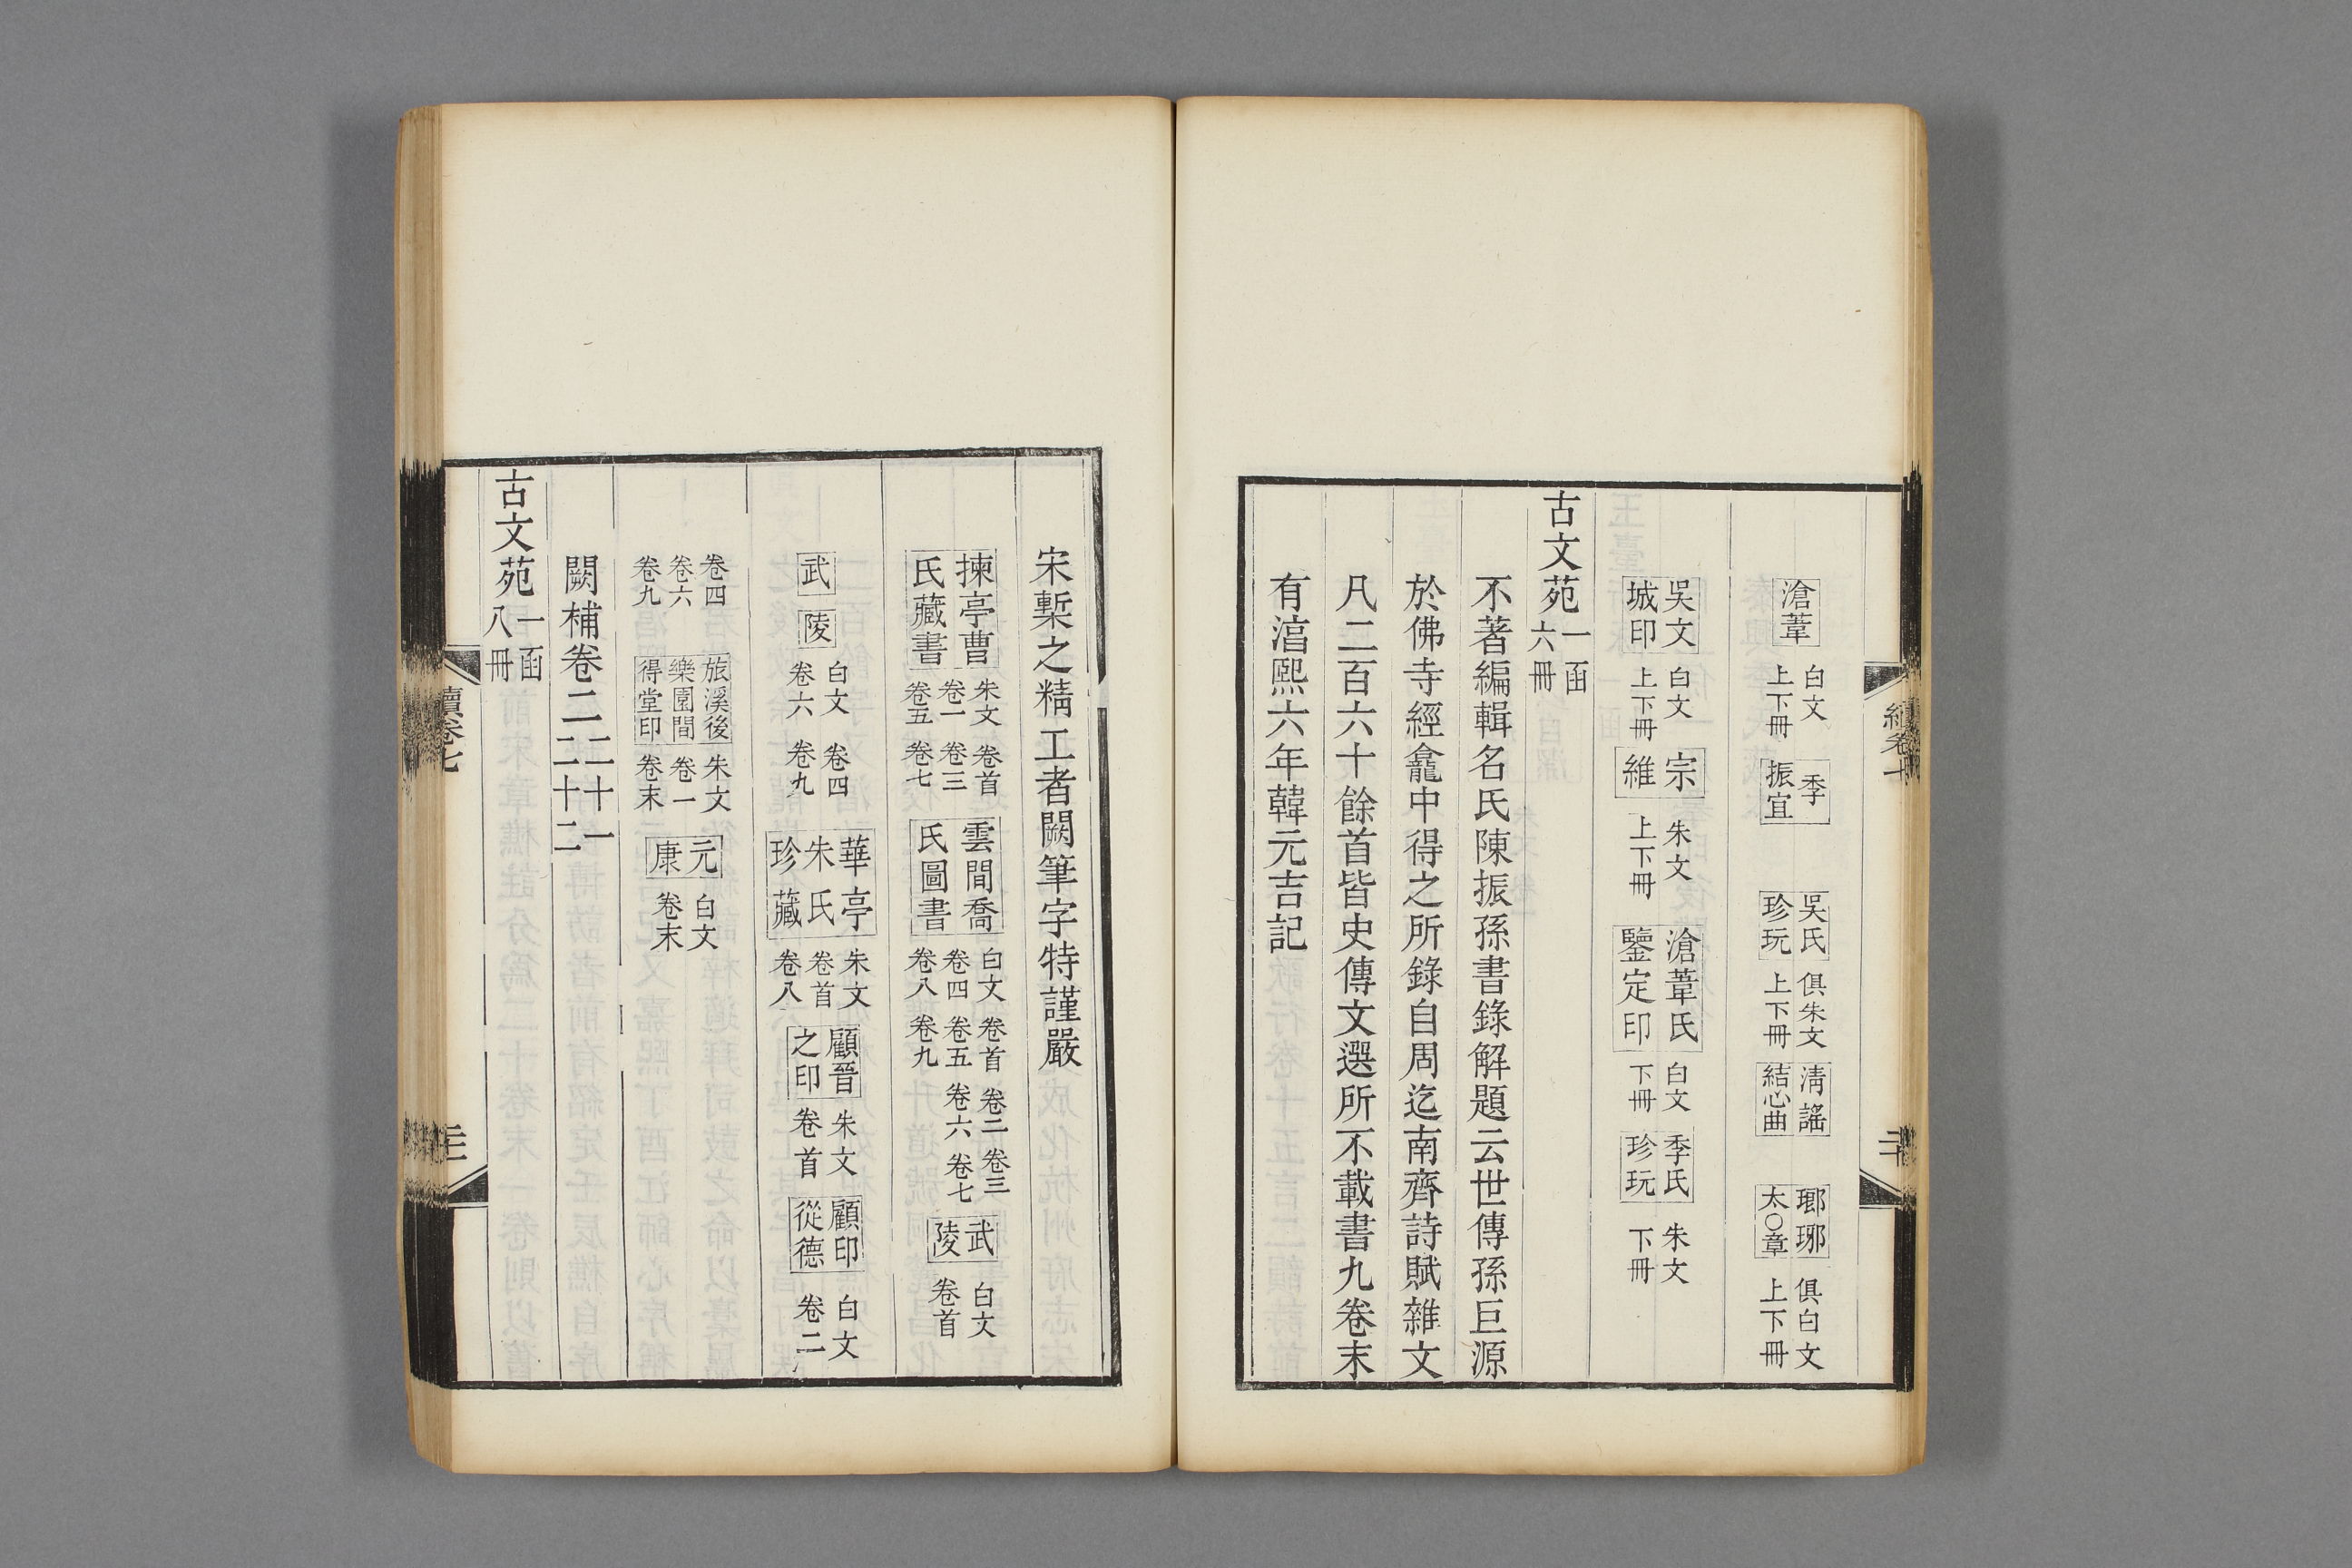 滄葦 白文 上下冊 季振宜 吳氏珍玩 俱朱文 上下冊 淸謠結心曲 瑯琊太〇章 俱白文 上下冊
吳文城印 白文 上下冊 宗維 朱文 上下冊 滄葦氏鑒定印 白文 下冊 季氏珍玩 朱文 下冊
古文苑 一函六冊
不著編輯名氏陳振孫書錄解題云世傳孫巨源
於佛寺經龕中得之所錄自周迄南齊詩賦雜文
凡二百六十餘首皆史傳文選所不載書九卷末
有湻熙六年韓元吉記
宋槧之精工者闕筆字特謹嚴
揀亭曹氏藏書 朱文 卷首 卷一 卷三 卷五 卷七 雲間喬氏圖書 白文 卷首 卷二 卷三 卷四 卷五 卷六 卷七 卷八 卷九 武陵 白文 卷首
武陵 白文 卷四 卷六 卷九 華亭朱氏珍藏 朱文 卷首 卷八 顧晉之印 朱文 卷首 顧印從德 白文 卷二
卷四 卷六 卷九 旅溪後樂園間得堂印 朱文 卷一 卷末 元康 白文 卷末
闕補卷二 二十一 二十二
古文苑 一函八冊
續卷七